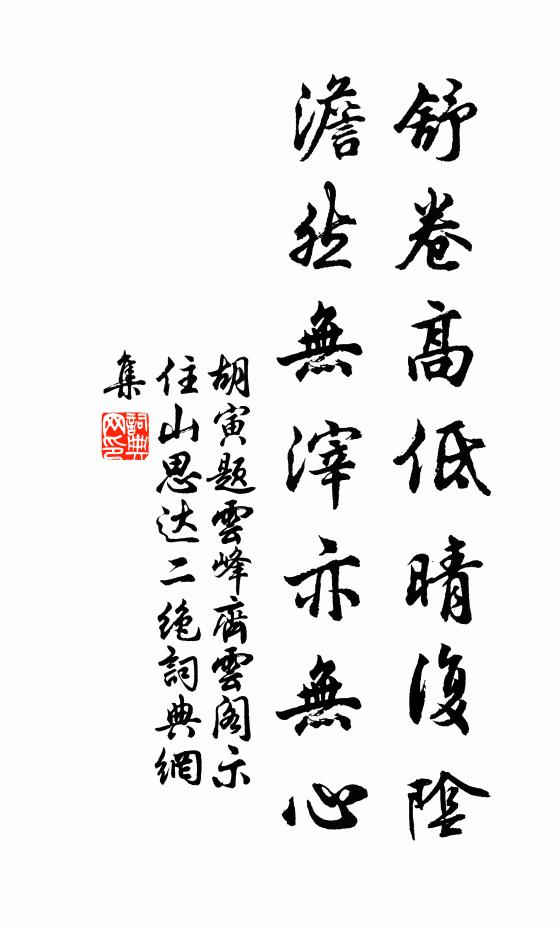 舒卷高低晴復陰
澹然無滓亦無心
胡寅題雲峰齊雲阁示
住山思达二絶詞典網
集
詞典
网印